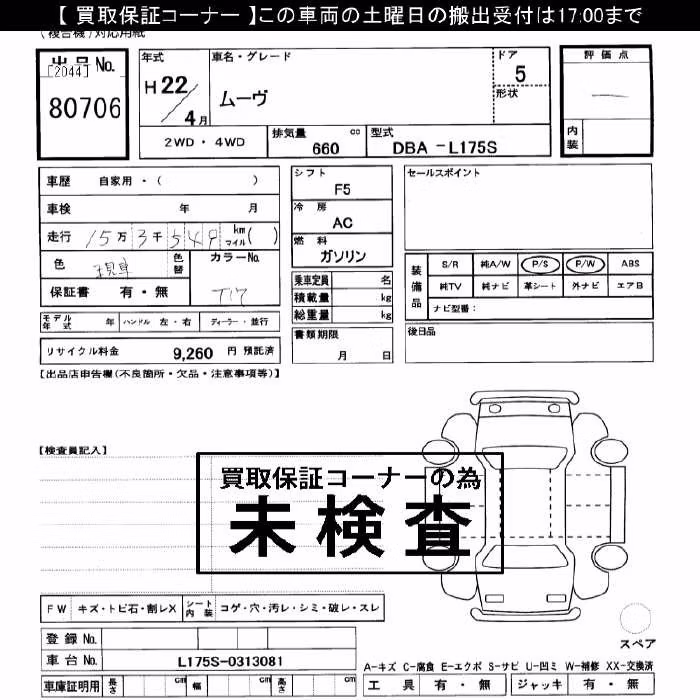 【 買取保証コーナー 】この車両の土曜日の搬出受付は17:00まで
(複合機)対応用紙
出品 No.
[2044]
80706
年式
H 22 / 4 月
車名・グレード
ムーヴ
ドア
5
形状
評価点
内装
2WD・4WD
排気量 660 cc
型式 DBA -L175S
車歴 自家用・( )
車検 年 月
走行 15万3千549 km マイル( )
色
色替
カラーNo.
T17
保証書 有・無
モデル年式 年 ハンドル 左・右 ディーラー・並行
リサイクル料金 9,260 円 預託済
シフト
F5
冷房
AC
燃料
ガソリン
乗車定員 名
積載量 kg
総重量 kg
書類期限
月 日
セールスポイント
装備品
S/R 純A/W P/S P/W ABS
純TV 純ナビ 革シート 外ナビ エアB
ナビ型番:
後日品
【出品店申告欄(不良箇所・欠品・注意事項等)】
【検査員記入】
買取保証コーナーの為
未検査
FW キズ・トビ石・割レX シート内装 コゲ・穴・汚レ・シミ・破レ・スレ
スペア
登録 No.
車台 No. L175S-0313081
車庫証明用 長さ cm 幅 cm 高さ cm
A-キズ C-腐食 E-エクボ S-サビ U-凹ミ W-補修 XX-交換済
工具 有・無 ジャッキ 有・無